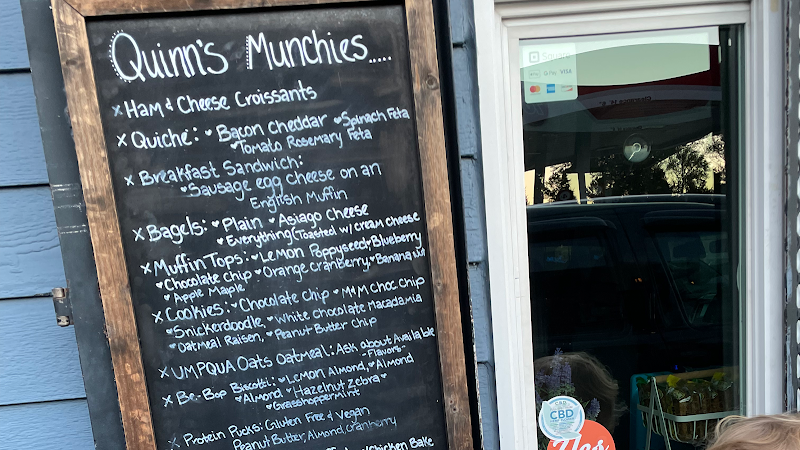 Quinn's Munchies.....
x Ham & Cheese Croissants
x Quiche: ♥ Bacon Cheddar ♥ Spinach Feta
♥ Tomato Rosemary Feta
x Breakfast Sandwich:
♥ Sausage egg Cheese on an
English Muffin
x Bagels: ♥ Plain ♥ Asiago Cheese
♥ Everything (Toasted w/ Cream Cheese
x Muffin Tops: ♥ Lemon Poppyseed ♥ Blueberry
♥ Chocolate Chip ♥ Orange Cranberry ♥ Banana Nut
♥ Apple Maple
x Cookies: ♥ Chocolate Chip ♥ M&M Choc Chip
♥ Snickerdoodle, ♥ White Chocolate Macadamia
♥ Oatmeal Raisen, ♥ Peanut Butter Chip
x UMPQUA Oats Oatmeal: Ask about Available
-Flavors-
x Be-Bop Biscotti: ♥ Lemon Almond, ♥ Almond
♥ Almond ♥ Hazelnut Zebra ♥
♥ Grasshoppermint
x Protein Pucks: Gluten Free & Vegan
Peanut Butter, Almond, Cranberry
/Chicken Bake
Square
G Pay VISA
CBD
Yes